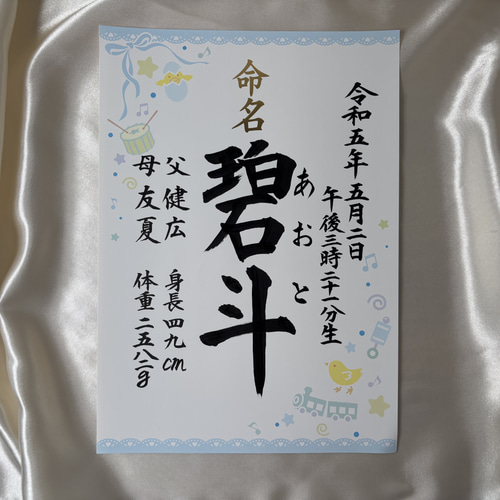 命名
令和五年五月二日
午後三時二十一分生
碧斗
あおと
父健広
母友夏
身長四九cm
体重二五八二g